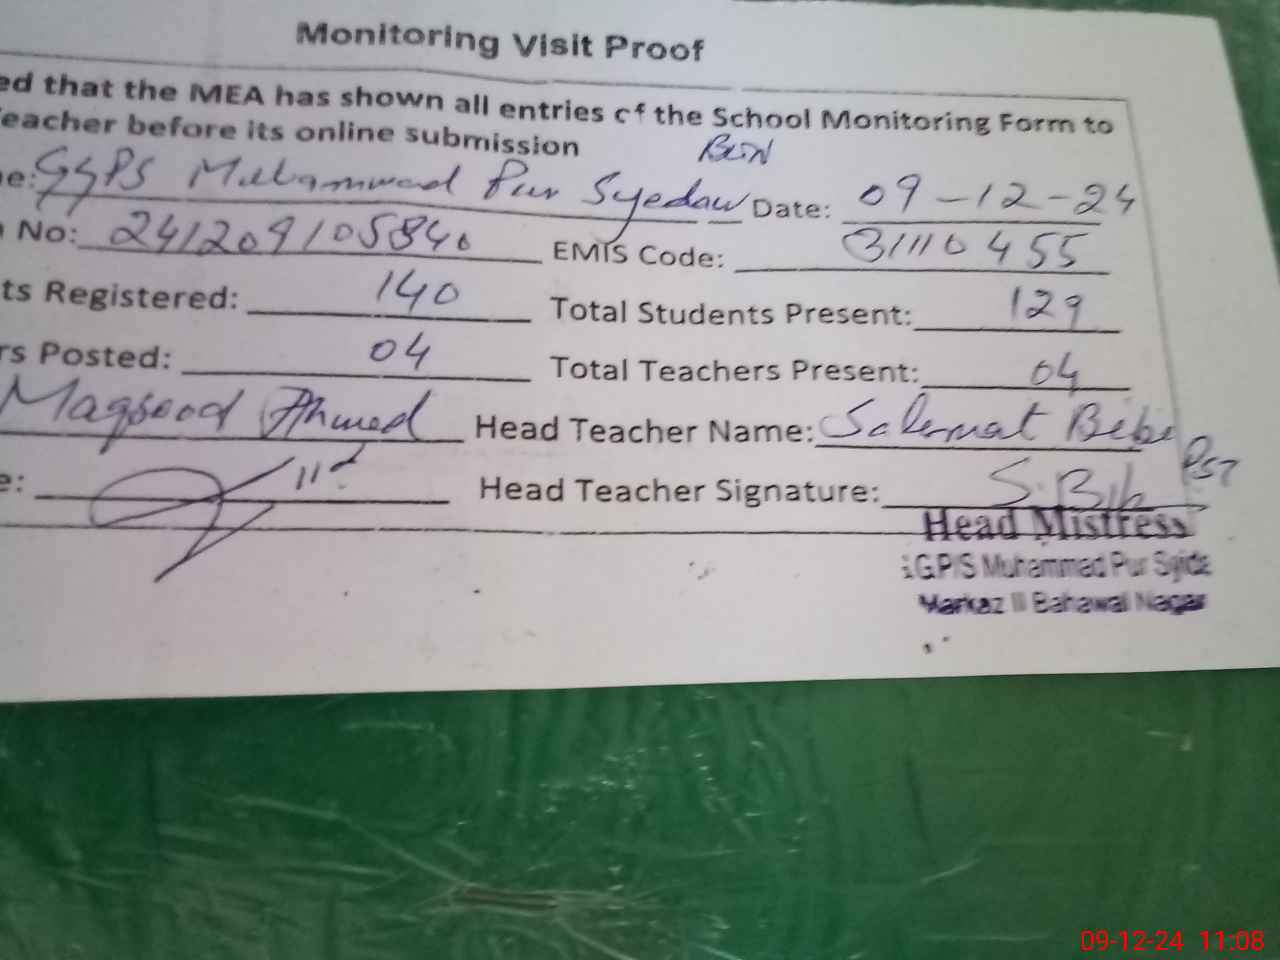 Monitoring Visit Proof
ed that the MEA has shown all entries of the School Monitoring Form to
eacher before its online submission
GGPS Muhammad Pur Syedaw Date: 09-12-24
No: 24120910584 EMIS Code: 31110455
ts Registered: 140 Total Students Present: 129
rs Posted: 04 Total Teachers Present: 04
Maqsood Ahmed Head Teacher Name: Salamat Bibi
PST
e: Head Teacher Signature: S. Bib
Head Mistress
GGP/S Muhammad Pur Syida
Markaz III Bahawal Nagar
09-12-24 11:08